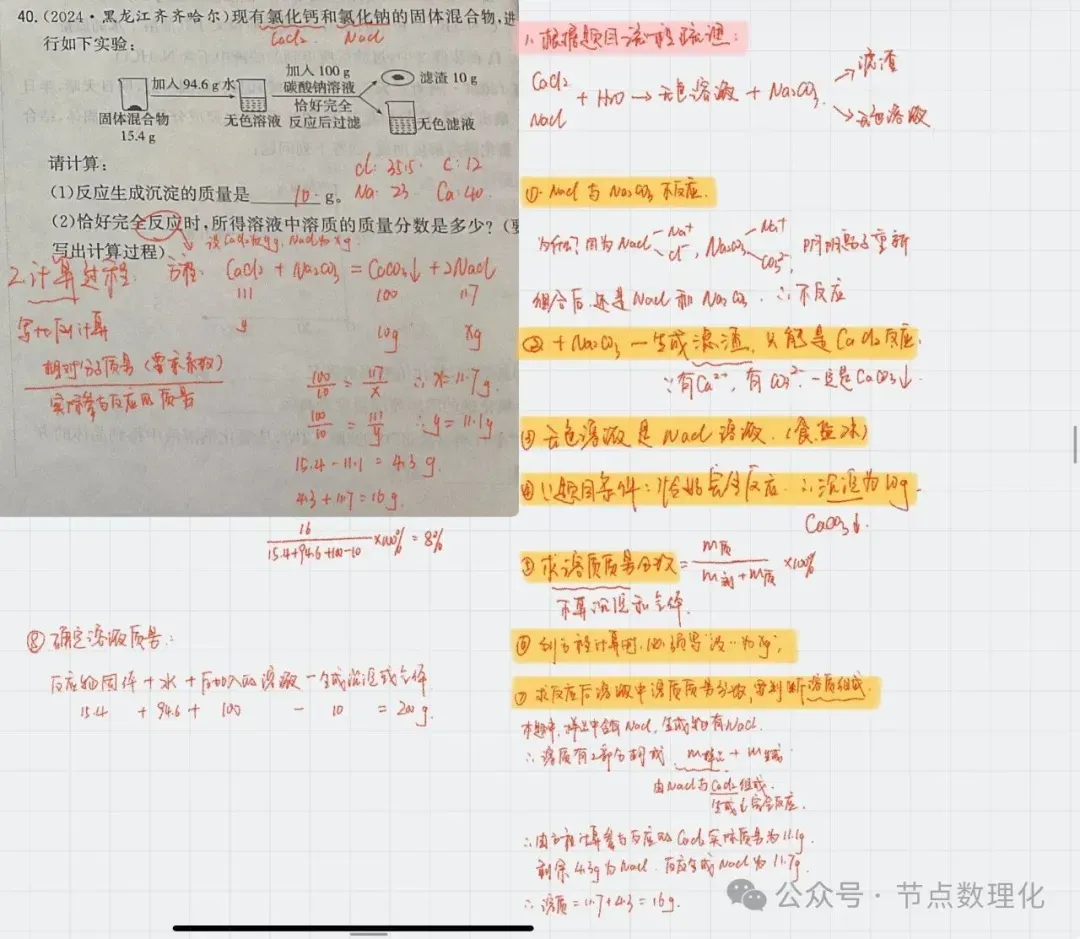 40.(2024·黑龙江齐齐哈尔)现有氯化钙和氯化钠的固体混合物,进
行如下实验:
CaCl2 NaCl
加入94.6 g水
加入100 g
碳酸钠溶液
恰好完全
反应后过滤
滤渣10 g
固体混合物
15.4 g
无色溶液
无色滤液
请计算:
Cl: 35.5 C: 12
(1)反应生成沉淀的质量是 10 g。
Na: 23 Ca: 40
(2)恰好完全反应时,所得溶液中溶质的质量分数是多少?(要
写出计算过程)
设CaCl2为yg, NaCl为xg
2.计算过程: 方程: CaCl2 + Na2CO3 = CaCO3↓ + 2NaCl
111 100 117
写比例计算 y 10g xg
相对分子质量(要乘系数)
实际参与反应的质量
100/10 = 117/x ∴x=11.7g.
100/10 = 111/y ∴y=11.1g
15.4-11.1=4.3g.
4.3+11.7=16g.
16/(15.4+94.6+100-10)×100%=8%
⑧确定溶液质量:
反应物固体+水+后加入的溶液-生成沉淀或气体.
15.4 + 94.6 + 100 - 10 = 200g.
1.根据题目流程梳理:
CaCl2
NaCl
+ H2O → 无色溶液 + Na2CO3
滤渣
无色溶液
①. NaCl与Na2CO3不反应.
为什么?因为NaCl Na+ Cl-, Na2CO3 Na+ CO3 2-, 阴阳离子重新
组合后还是NaCl和Na2CO3. ∴不反应
②+Na2CO3-生成滤渣,只能是CaCl2反应.
∵有Ca2+,有CO3 2-.一定是CaCO3↓.
③无色溶液是NaCl溶液.(食盐水)
④题目条件:恰好完全反应.∴沉淀为10g.
CaCO3↓.
⑤求溶质质量分数=m质/(m剂+m质)×100%
不算沉淀和气体.
⑥列方程计算时,必须写"设…为xg";
⑦求反应后溶液中溶质质量分数,要判断溶质组成.
本题中,样品中含有NaCl,生成物有NaCl.
∴溶质有2部分组成 m样品+m生成
由NaCl与CaCl2组成.
完全反应.
∴由方程计算参与反应的CaCl2实际质量为11.1g.
剩余4.3g为NaCl.反应生成NaCl为11.7g.
∴溶质=11.7+4.3=16g.
公众号·节点数理化